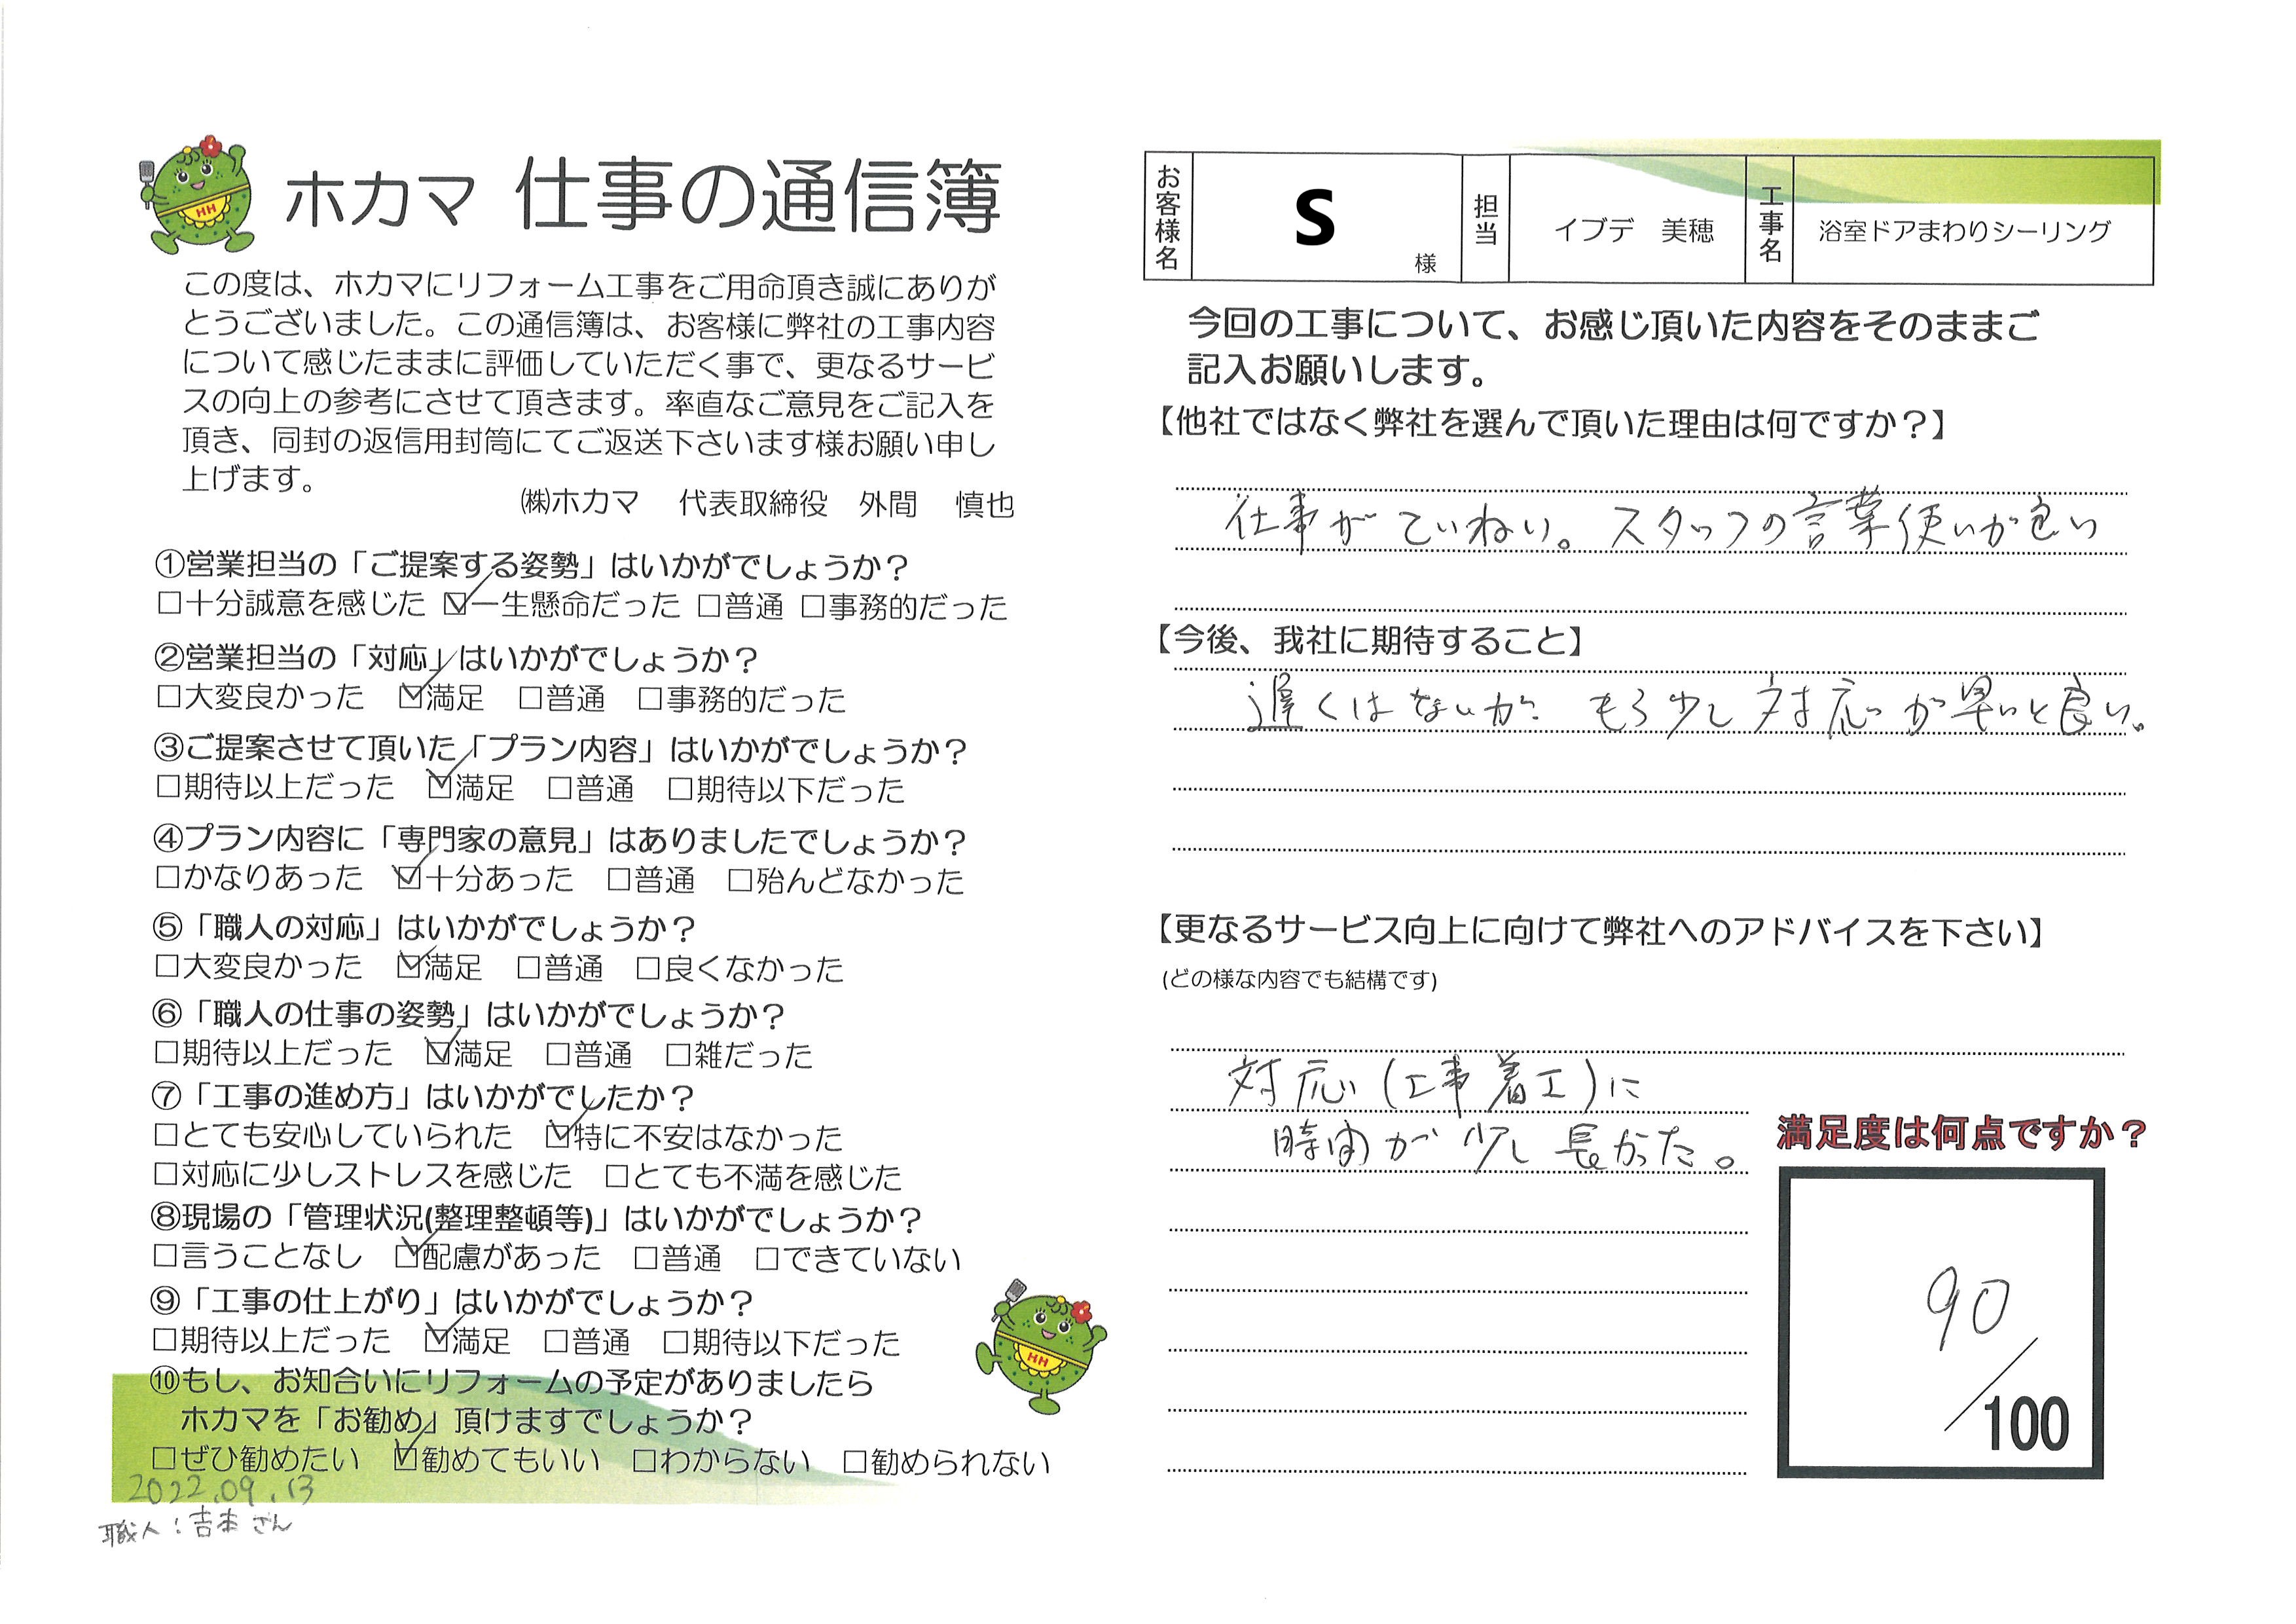 ホカマ 仕事の通信簿
この度は、ホカマにリフォーム工事をご用命頂き誠にありが
とうございました。この通信簿は、お客様に弊社の工事内容
について感じたままに評価していただく事で、更なるサービ
スの向上の参考にさせて頂きます。率直なご意見をご記入を
頂き、同封の返信用封筒にてご返送下さいます様お願い申し
上げます。
㈱ホカマ 代表取締役 外間 慎也
①営業担当の「ご提案する姿勢」はいかがでしょうか？
□十分誠意を感じた ☑一生懸命だった □普通 □事務的だった
②営業担当の「対応」はいかがでしょうか？
□大変良かった ☑満足 □普通 □事務的だった
③ご提案させて頂いた「プラン内容」はいかがでしょうか？
□期待以上だった ☑満足 □普通 □期待以下だった
④プラン内容に「専門家の意見」はありましたでしょうか？
□かなりあった ☑十分あった □普通 □殆んどなかった
⑤「職人の対応」はいかがでしょうか？
□大変良かった ☑満足 □普通 □良くなかった
⑥「職人の仕事の姿勢」はいかがでしょうか？
□期待以上だった ☑満足 □普通 □雑だった
⑦「工事の進め方」はいかがでしたか？
□とても安心していられた ☑特に不安はなかった
□対応に少しストレスを感じた □とても不満を感じた
⑧現場の「管理状況(整理整頓等)」はいかがでしょうか？
□言うことなし ☑配慮があった □普通 □できていない
⑨「工事の仕上がり」はいかがでしょうか？
□期待以上だった ☑満足 □普通 □期待以下だった
HH
⑩もし、お知合いにリフォームの予定がありましたら
ホカマを「お勧め」頂けますでしょうか？
□ぜひ勧めたい ☑勧めてもいい □わからない □勧められない
2022.09.13
職人：吉本さん
HH
お客様名 S 様 担当 イブデ 美穂 工事名 浴室ドアまわりシーリング
今回の工事について、お感じ頂いた内容をそのままご
記入お願いします。
【他社ではなく弊社を選んで頂いた理由は何ですか？】
仕事がていねい。スタッフの言葉使いが良い
【今後、我社に期待すること】
遅くはないが、もう少し対応が早いと良い。
【更なるサービス向上に向けて弊社へのアドバイスを下さい】
(どの様な内容でも結構です)
対応(工事着工)に
時間が少し長かった。
満足度は何点ですか？
90
/100